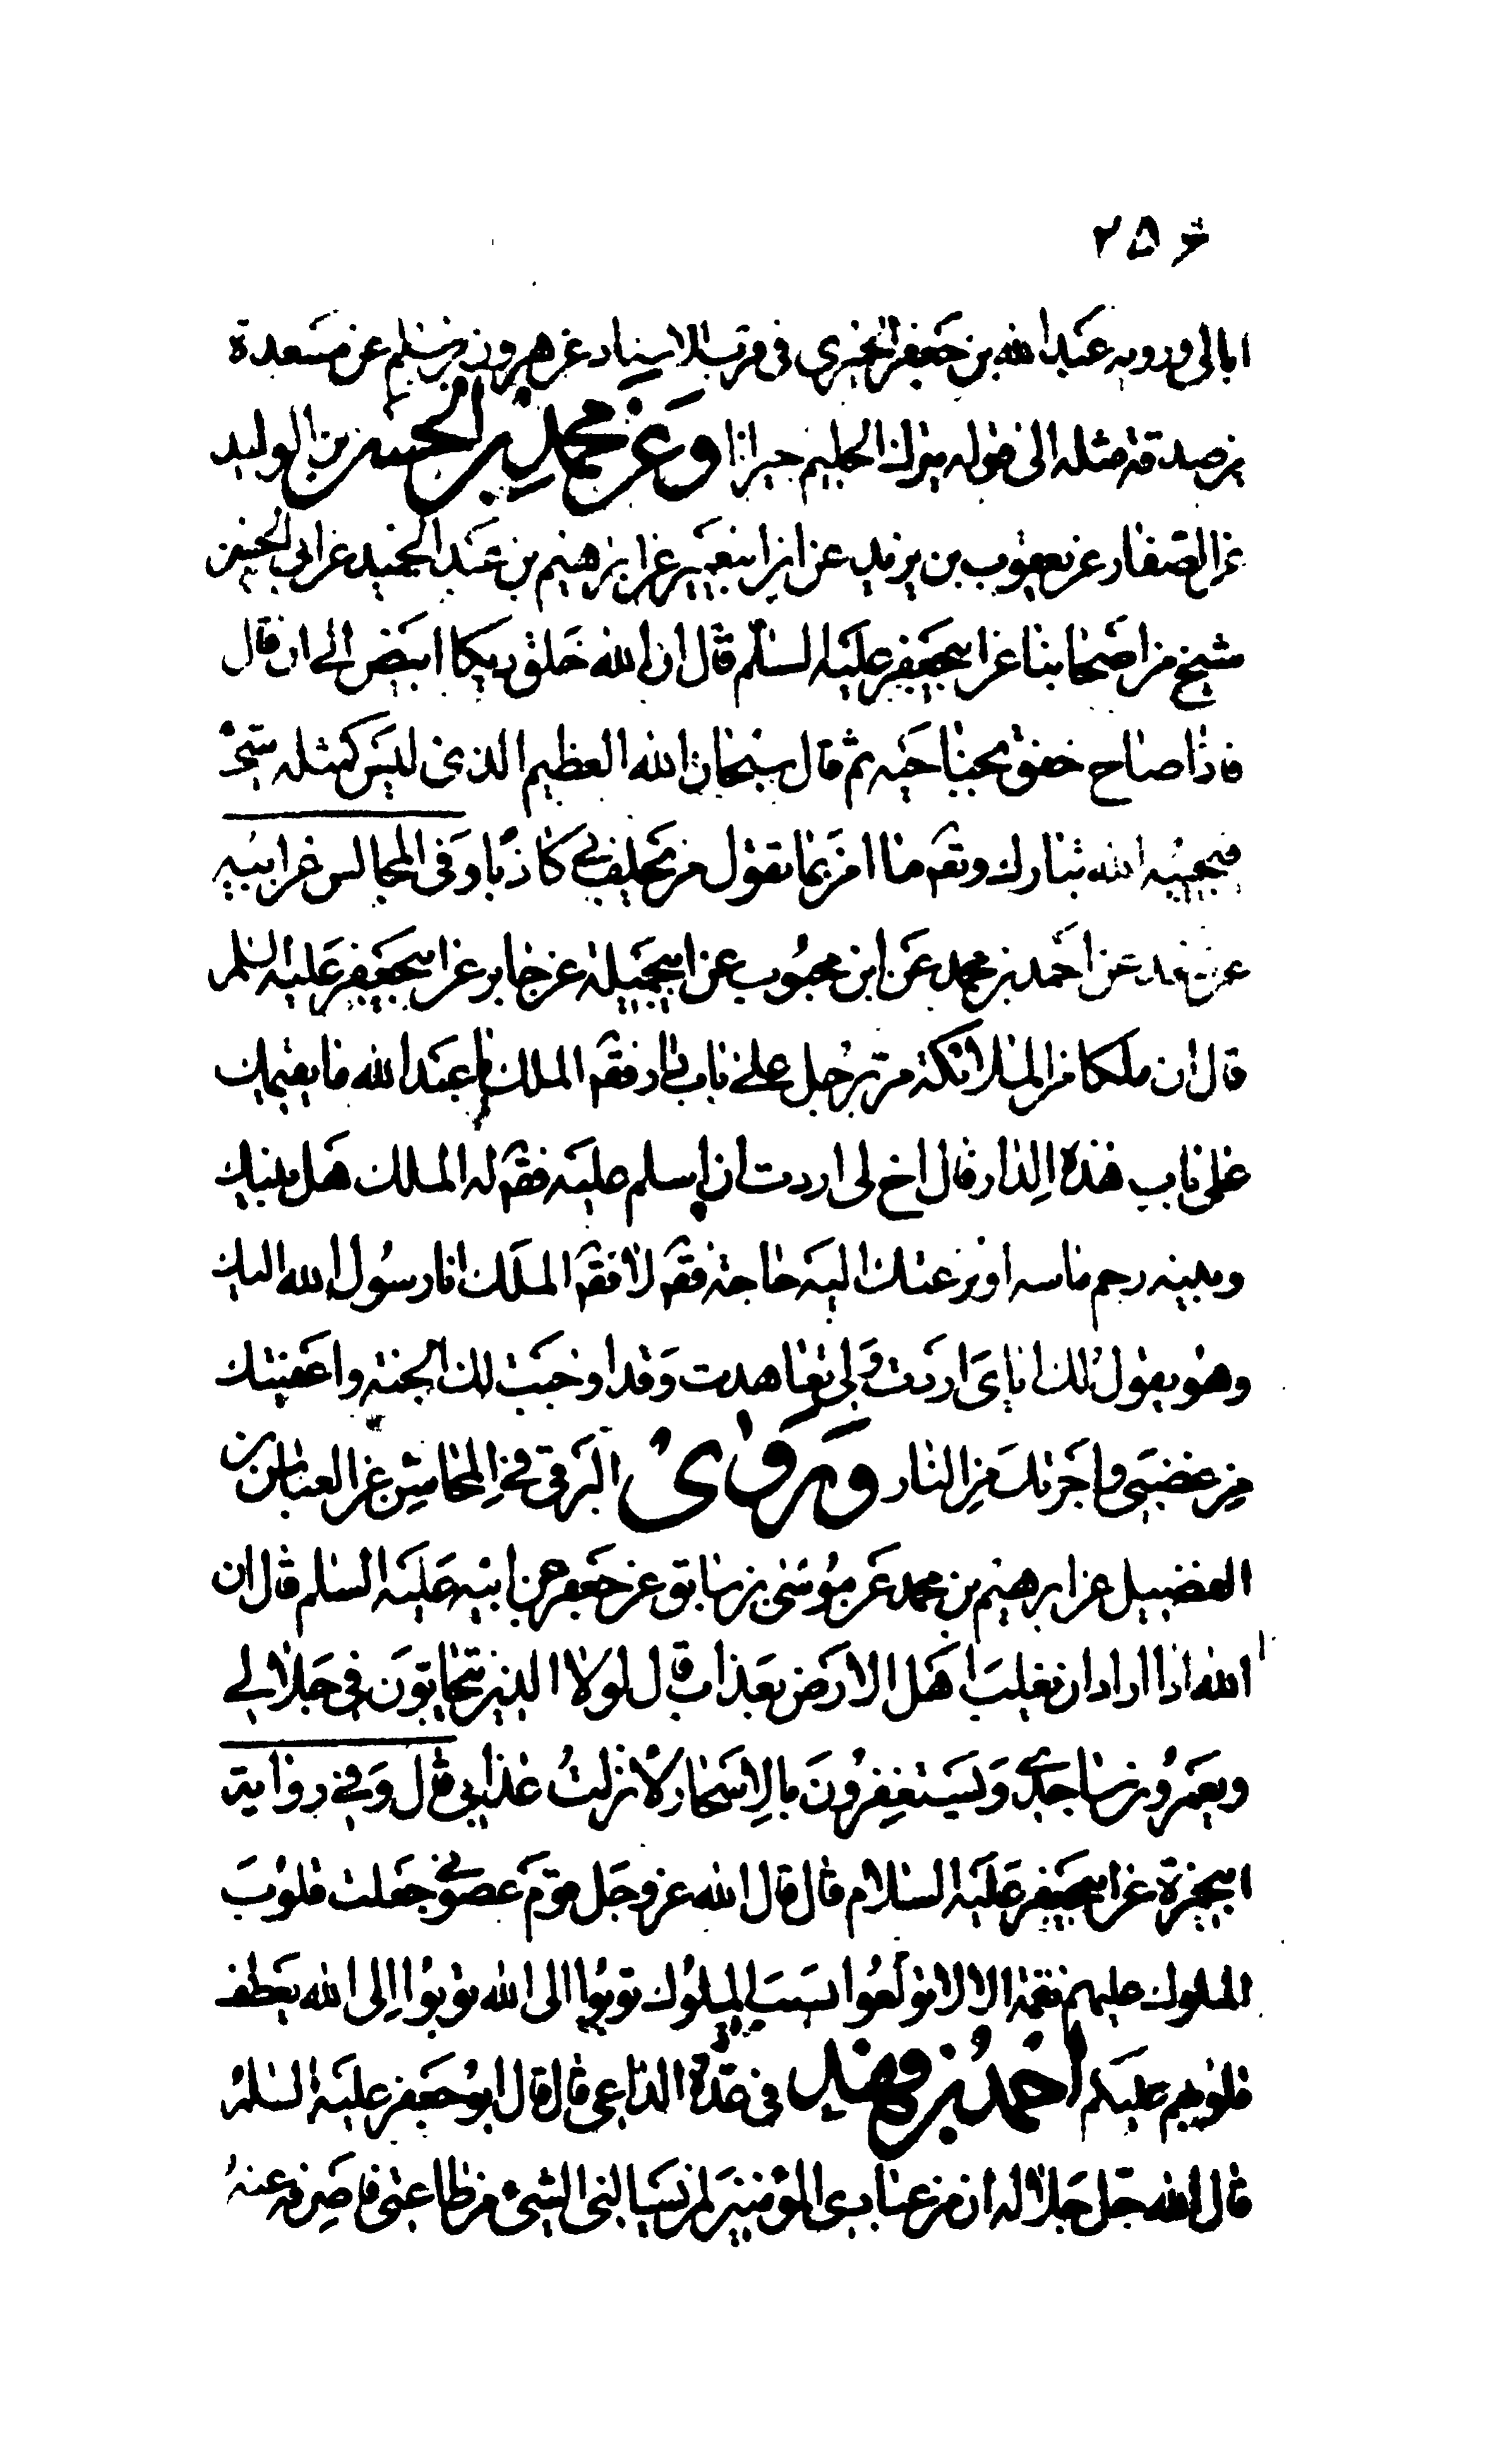 ۲۵۶
ابالي ورويه عبد الله بن جعفر الحميري في قرب الاسناد عن هرون بن مسلم عن مسعدة
بن صدقة مثله الى قوله يترك الحليم حيرانا وعن محمد بن الحسن بن الوليد
عن الصفار عن يعقوب بن يزيد عن ابن ابيعمير عن ابرهيم بن عبد الحميد عن ابي الحسن
شيخ من اصحابنا عن ابيجعفر عليه السلم قال ان الله خلق ديكا ابيض الى ان قال
فاذا صاح خفق بجناحيه ثم قال سبحان الله العظيم الذي ليس كمثله شئ
فيجيبه الله تبارك وتعه ما امن بما تقول من يحلف بي كاذبا وفي المجالس عن ابيه
عن سعد عن احمد بن محمد عن ابن محبوب عن ابيجميلة عن جابر عن ابيجعفر عليه السلم
قال ان ملكا من الملائكة مر برجل على باب دار فقه الملك يا عبد الله ما يقيمك
على باب هذه الدار قال اخ لي اردت ان اسلم عليه فقه له الملك هل بينك
وبينه رحم ماسه او نزعتك اليه حاجة فقه لا فقه الملك انا رسول الله اليك
وهو يقول لك اياى اردت ولي تعاهدت وقد اوجبت لك الجنة واعفيتك
من غضبي واجرتك من النار وروى البرقي في المحاسن عن العباس بن
الفضيل عن ابرهيم بن محمد عن موسى بن سابق عن جعفر عن ابيه عليه السلم قال ان
الله اذا اراد ان يعذب اهل الارض بعذاب قال لولا الذين يتحابون في جلالي
ويعمرون مساجدي ويستغفرون بالاسحار لانزلت عذابي قال وفي رواية
ابيحمزة عن ابيجعفر عليه السلام قال قال الله عز وجل قوم عصوني جعلت قلوب
الملوك عليهم نقمة الا لا تولعوا بسب الملوك توبوا الى الله توبوا الى الله يعطف
قلوبهم عليكم احمد بن فهد في عدة الداعي قال قال ابو جعفر عليه السلم
قال الله جل جلاله ان من عبادي المؤمنين لمن يسالني الشئ من طاعتي فاصرفه عنه